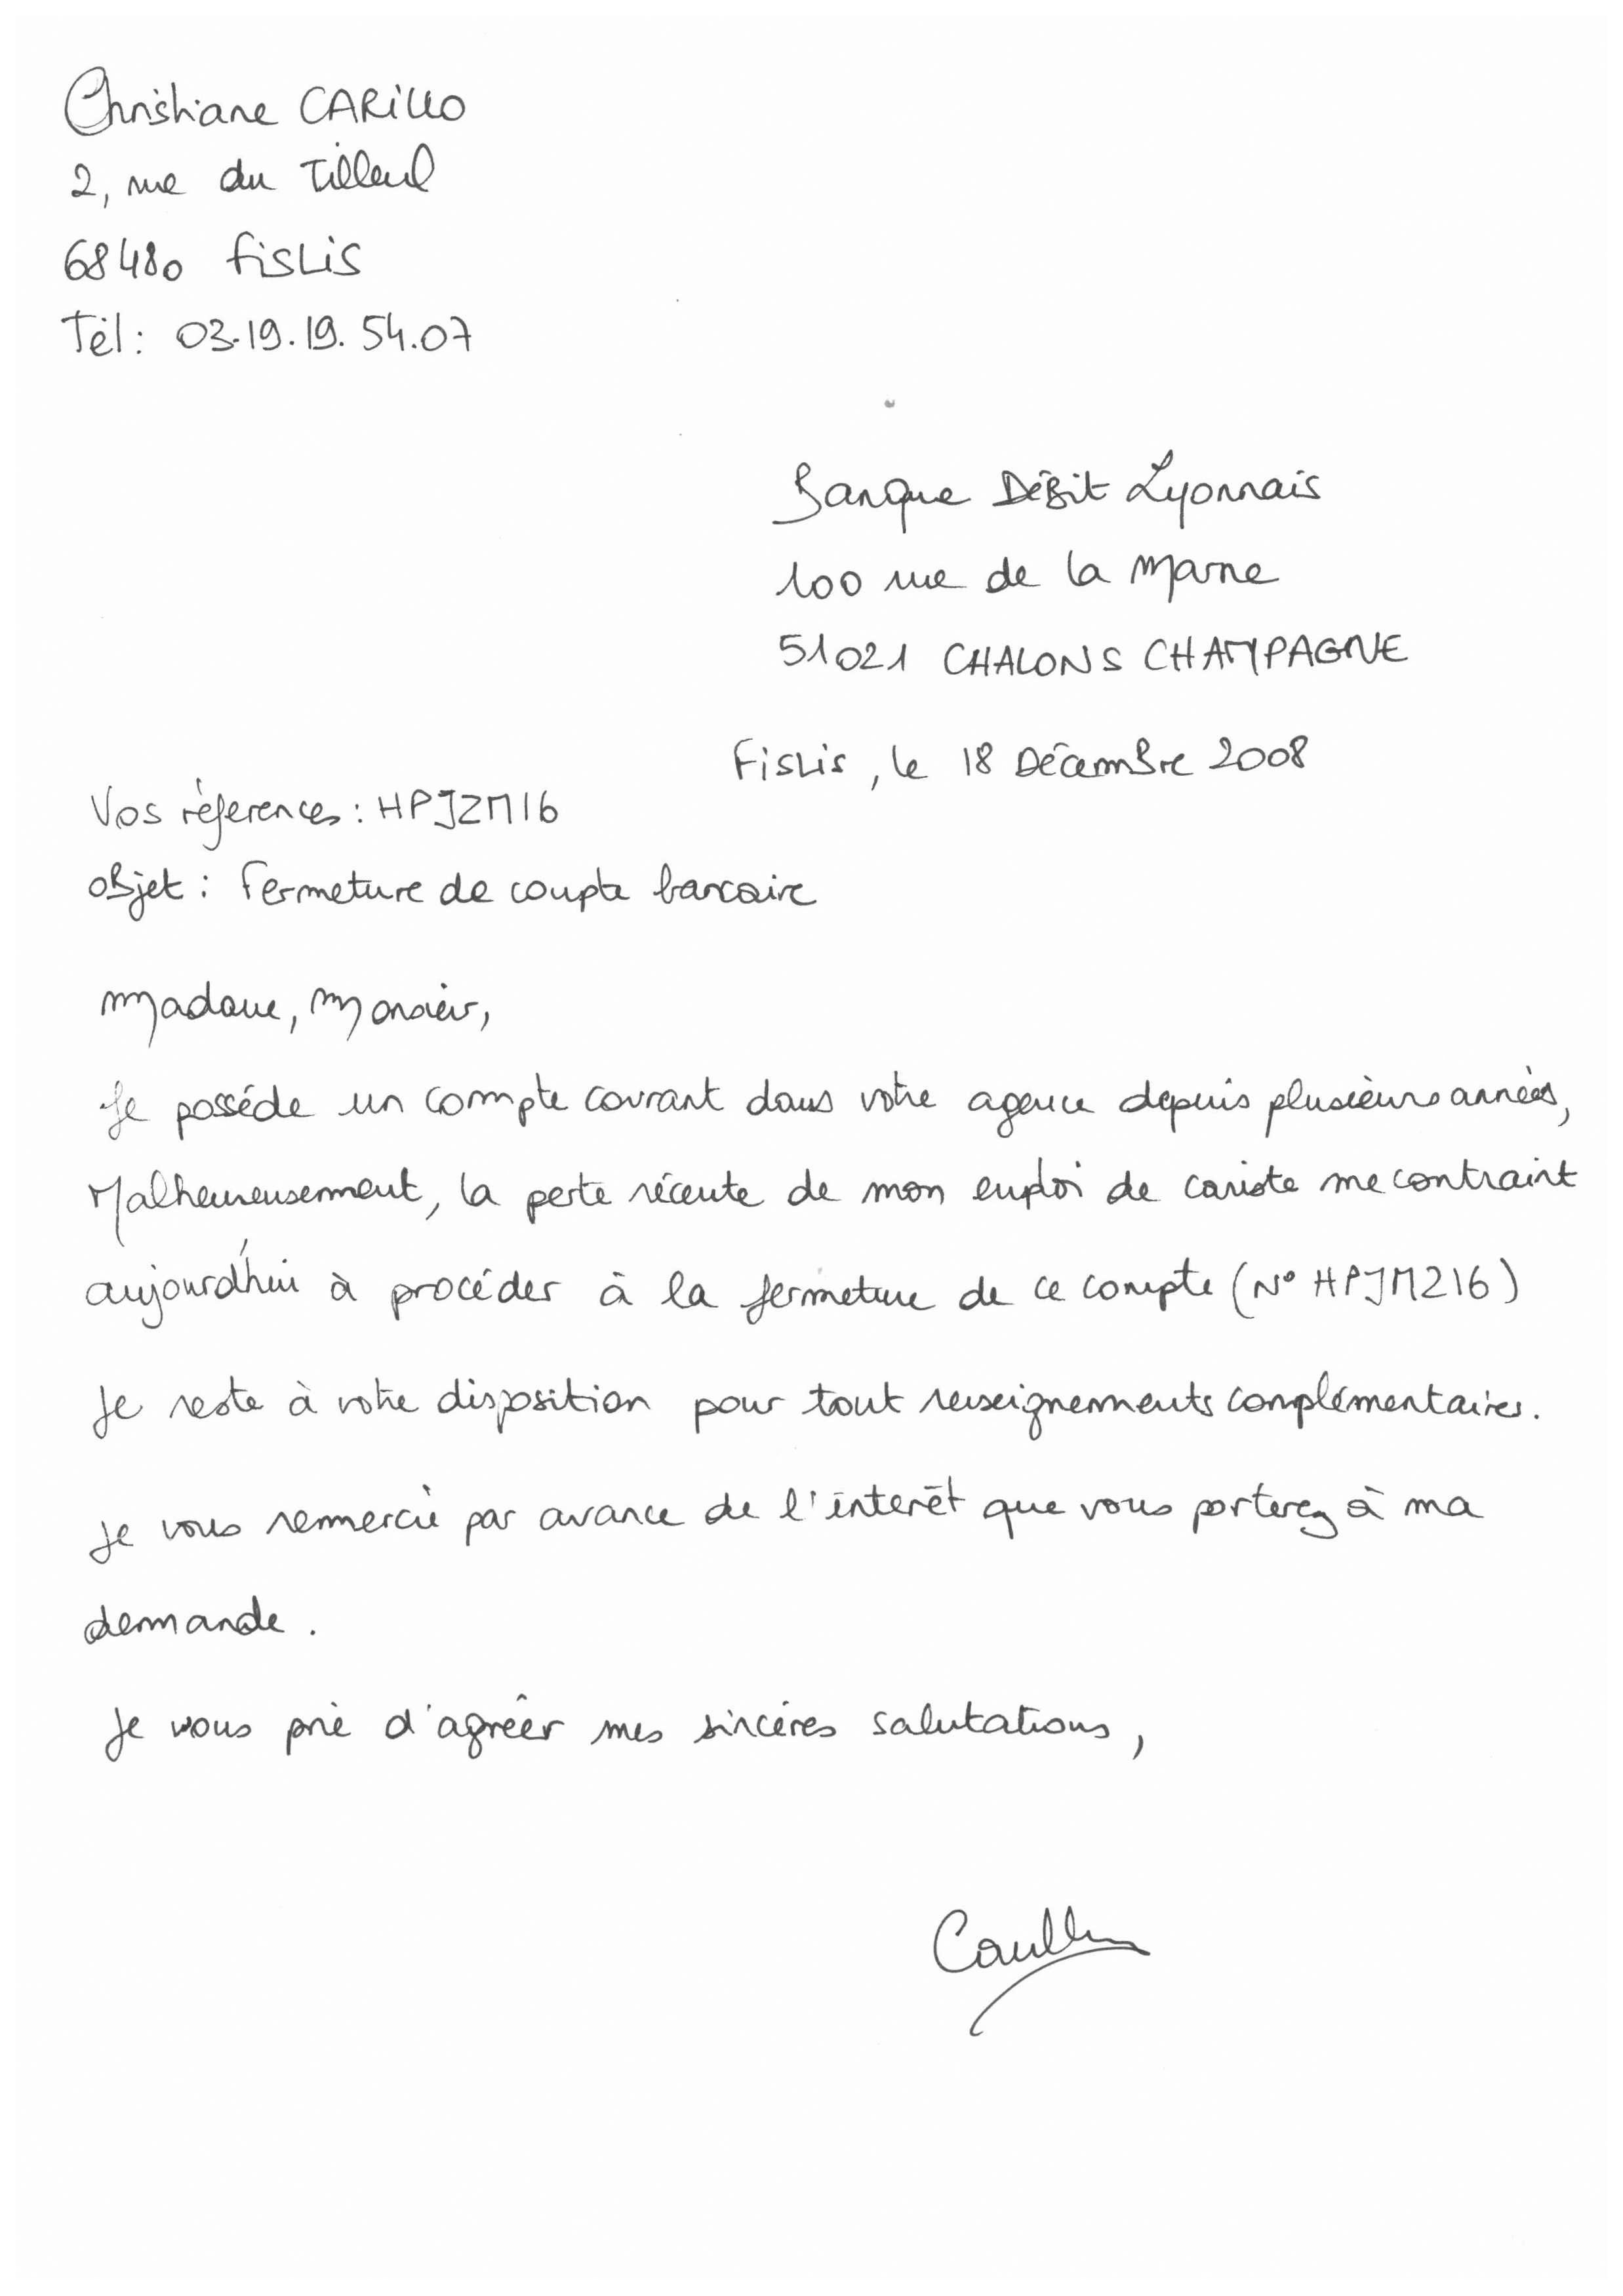 Christiane CARILLO
2, rue du Tilleul
68480 Fislis
Tél : 03.19.19.54.07
Banque Débit Lyonnais
100 rue de la Marne
51021 CHALONS CHAMPAGNE
Fislis, le 18 Décembre 2008
Vos réferences : HPJZM16
Objet : Fermeture de compte bancaire
Madame, Monsieur,
Je posséde un compte courant dans votre agence depuis plusieurs années,
Malheureusement, la perte récente de mon emploi de cariste me contraint
aujourd'hui à procéder à la fermeture de ce compte (N° HPJM216)
Je reste à votre disposition pour tout renseignements complémentaires.
Je vous remercie par avance de l'interêt que vous porterez à ma
demande.
Je vous prie d'agréer mes sincéres salutations,